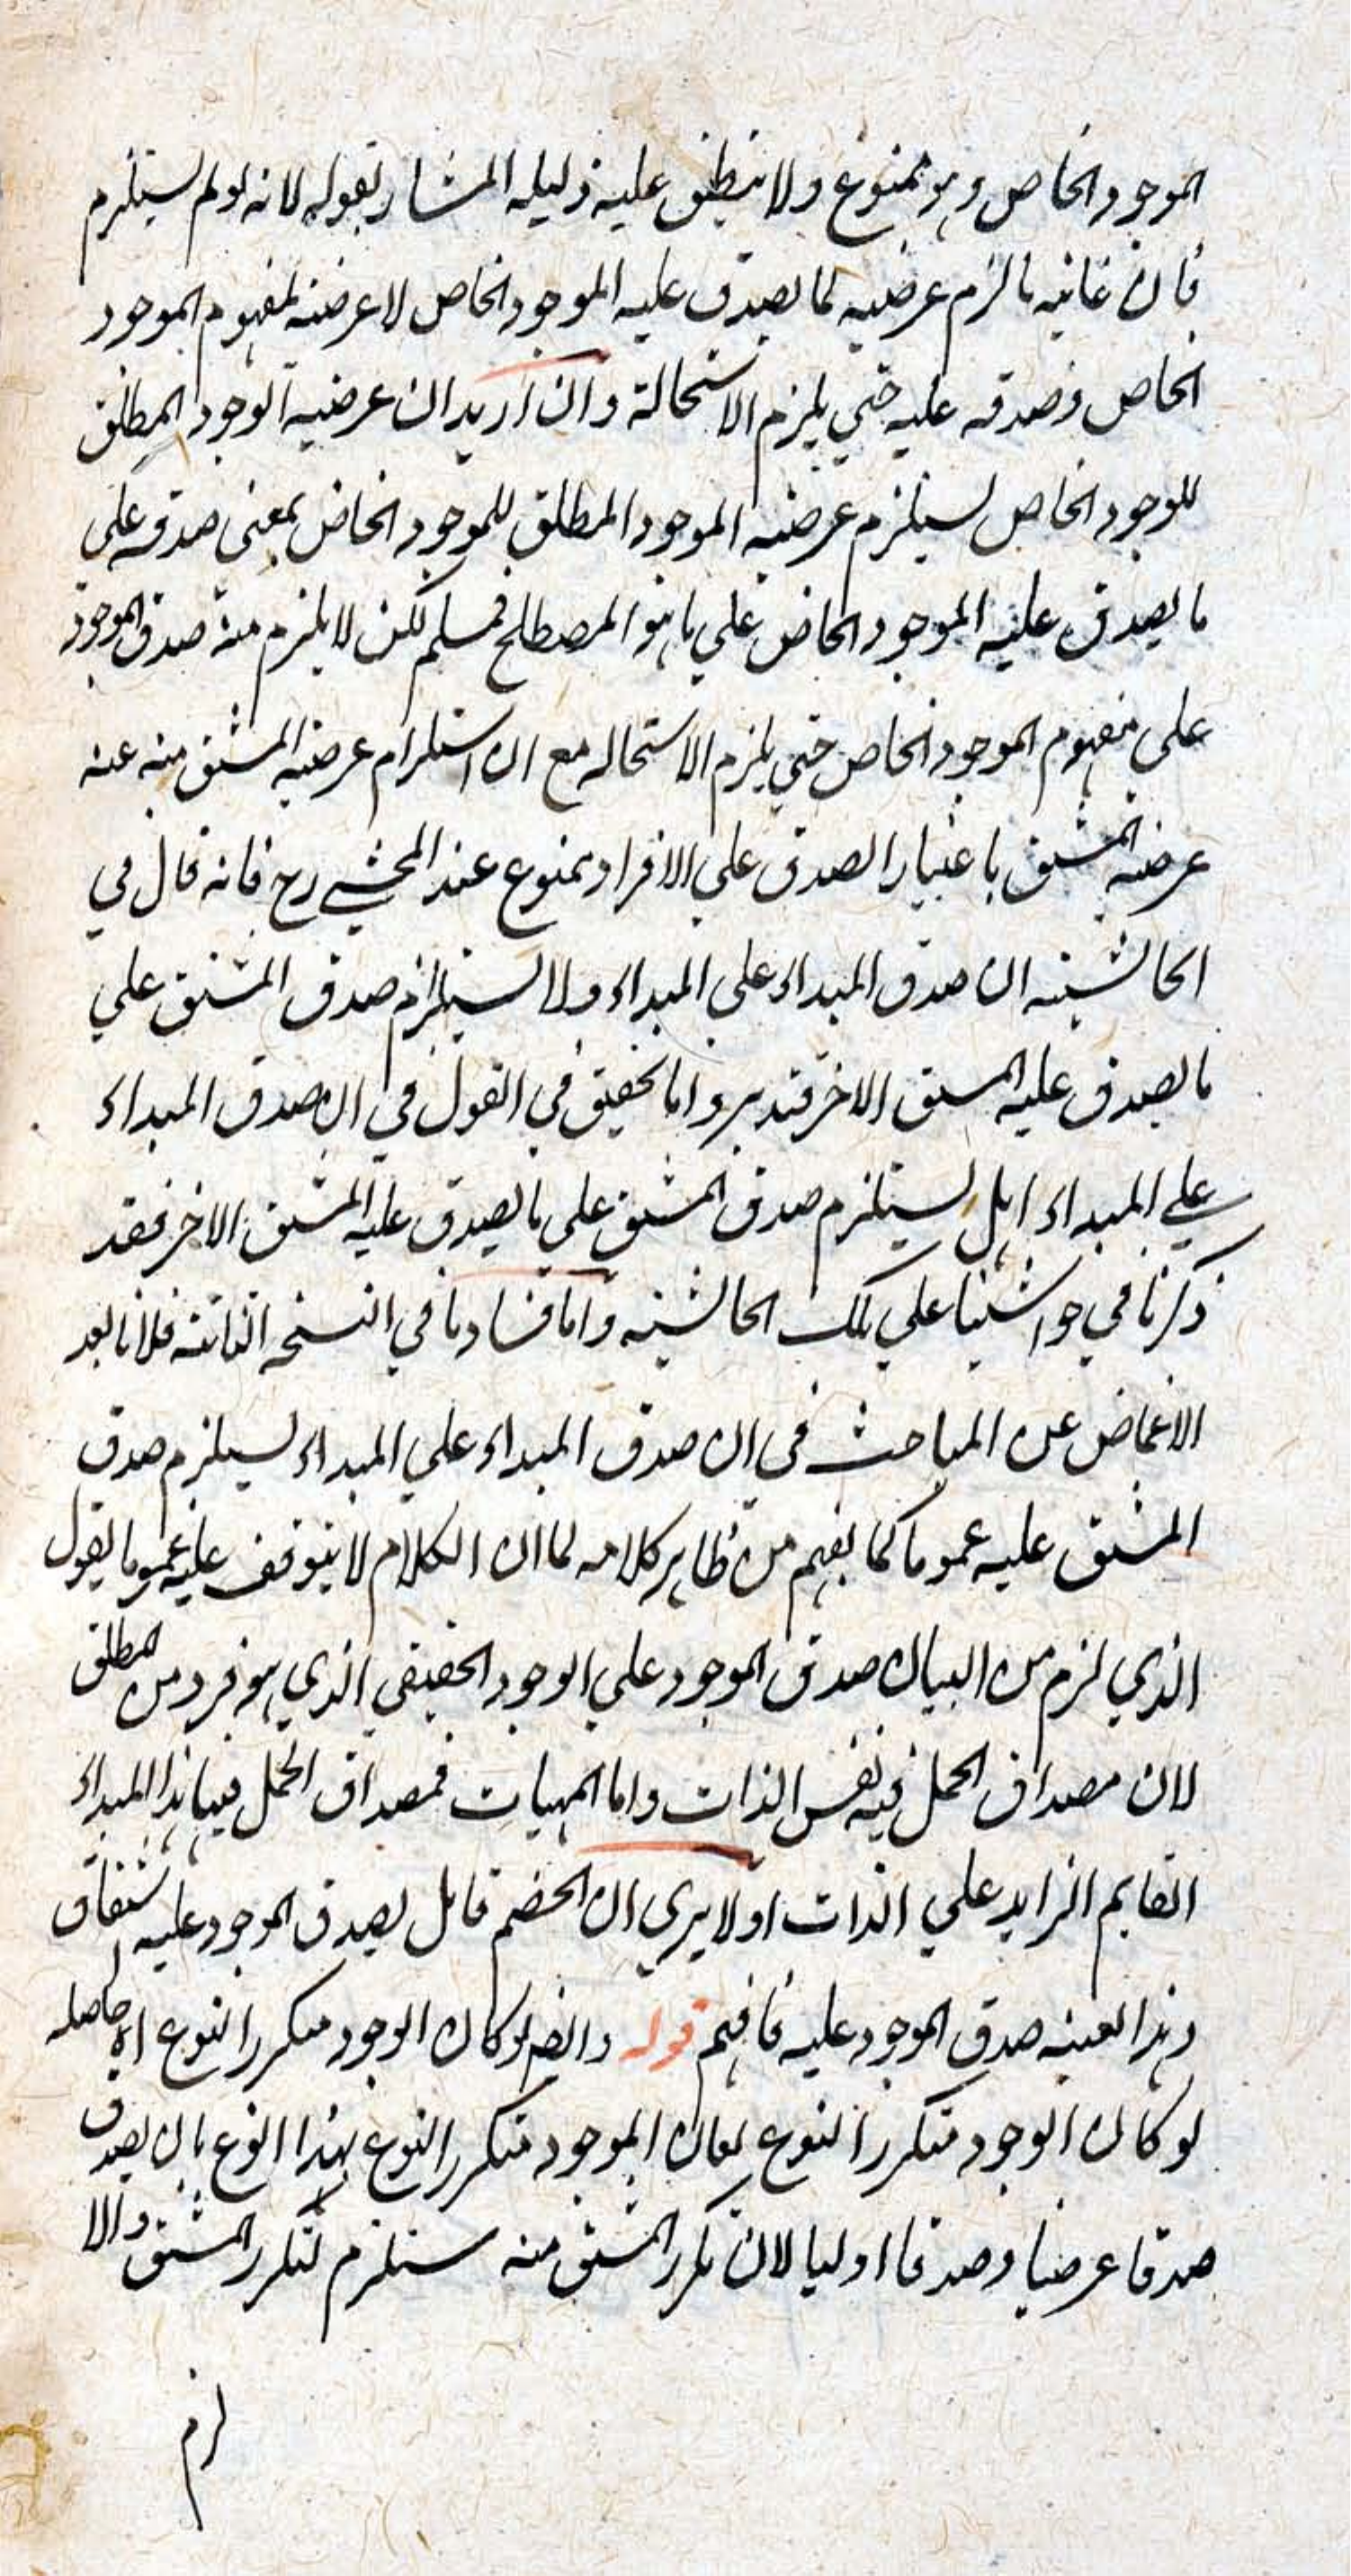 الموجود الخاص وهو ممنوع ولا ينطبق عليه دليله المشار بقوله لانه لو لم يستلزم
فان غايته ما لزم عرضيه لما يصدق عليه الموجود الخاص لا عرضيه لمفهوم الموجود
الخاص وصدقه عليه حتي يلزم الاستحالة وان اريد ان عرضية الوجود المطلق
للوجود الخاص يستلزم عرضيه الموجود المطلق للموجود الخاص بمعني صدقه علي
ما يصدق عليه الموجود الخاص علي ما هو المصطلح فمسلم لكن لا يلزم منه صدق الموجود
علي مفهوم الموجود الخاص حتي يلزم الاستحاله مع ان استلزام عرضيه المشتق منه عنه
عرضيه المشتق باعتبار الصدق علي الافراد ممنوع عند المحشي رح فانه قال في
الحاشيه ان صدق المبداء علي المبداء ولا يستلزم صدق المشتق علي
ما يصدق عليه المشتق الاخر فتدبر واما تحقيق في القول في ان صدق المبداء
علي المبداء اهل يستلزم صدق المشتق علي ما يصدق عليه المشتق الاخر فقد
ذكرنا في حواشينا علي تلك الحاشيه واما فساد ما في النسخه الثانيه فلانا بعد
الاغماض عن المباحث في ان صدق المبداء علي المبداء يستلزم صدق
المشتق عليه عموما كما يفهم من ظاهر كلامه لما ان الكلام لا يتوقف عليه عموما يقول
الذي لزم من البيان صدق الموجود علي الوجود الحقيقي الذي هو فرد من المطلق
لان مصداق الحمل فيه نفس الذات واما المهيات فمصداق الحمل فيها هذا المبداء
القايم الزايد علي الذات اولا يري ان الخصم قايل يصدق الموجود عليه اشتقاق
وهذا بعينه صدق الموجود عليه فافهم قوله وايضا لو كان الوجود متكرر النوع اه حاصله
لو كان الوجود متكرر النوع لكان الموجود متكرر النوع بهذا النوع بان يصدق
صدقا عرضيا وصدقا اوليا لان تكرر المشتق منه يستلزم لتكرر المشتق والا
لزم